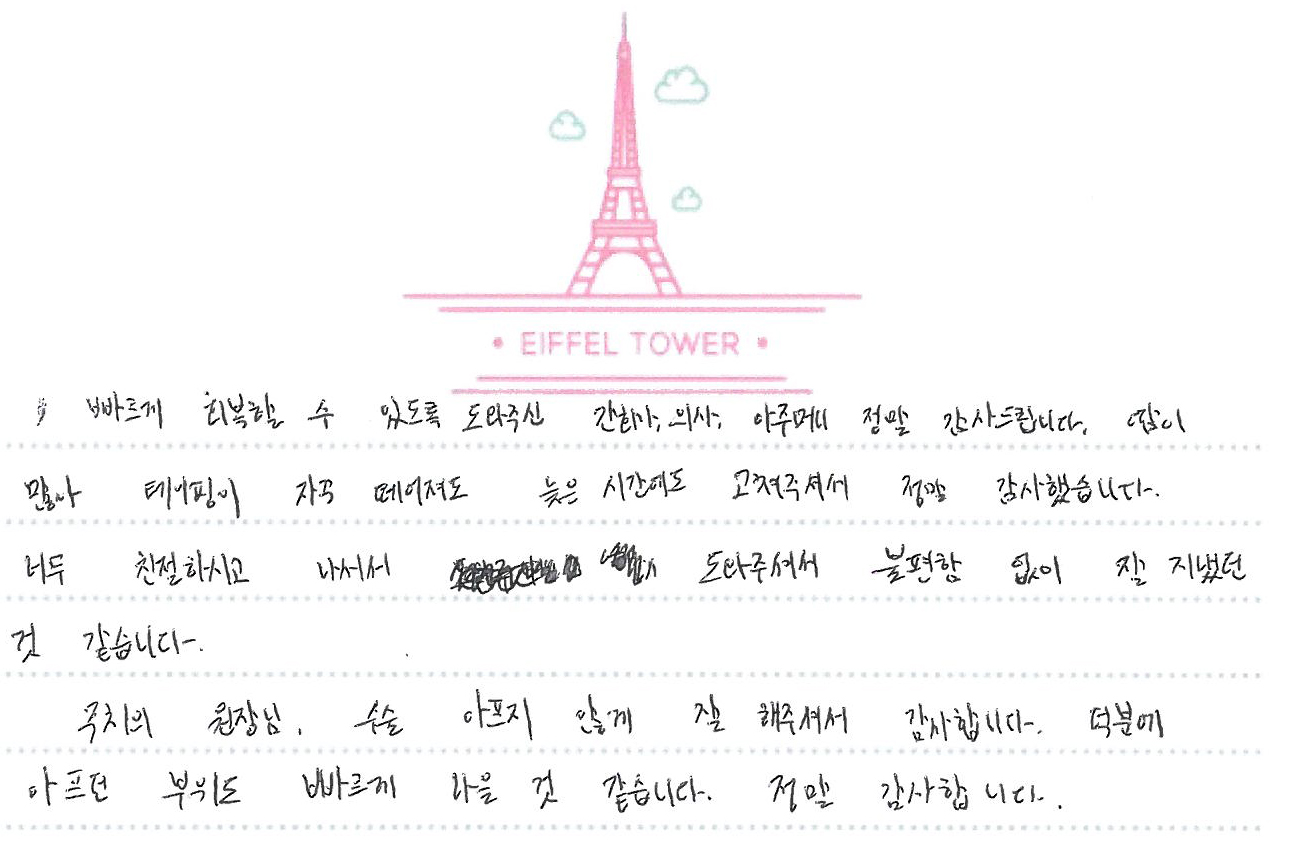 EIFFEL TOWER
빠르게 회복할 수 있도록 도와주신 간호사, 의사, 아주머니 정말 감사드립니다. 땀이
많아 테이핑이 자꾸 떼어져도 늦은 시간에도 고쳐주셔서 정말 감사했습니다.
너무 친절하시고 나서서 도와주셔서 불편함 없이 잘 지냈던
것 같습니다.
주치의 원장님, 수술 아프지 않게 잘 해주셔서 감사합니다. 덕분에
아프던 부위도 빠르게 나을 것 같습니다. 정말 감사합니다.